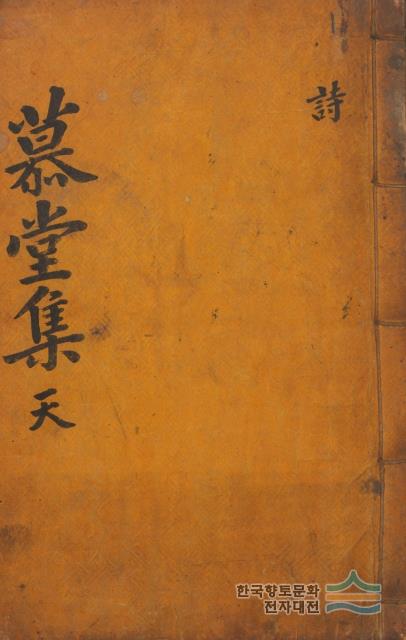 詩
慕堂集 天
한국향토문화
전자대전